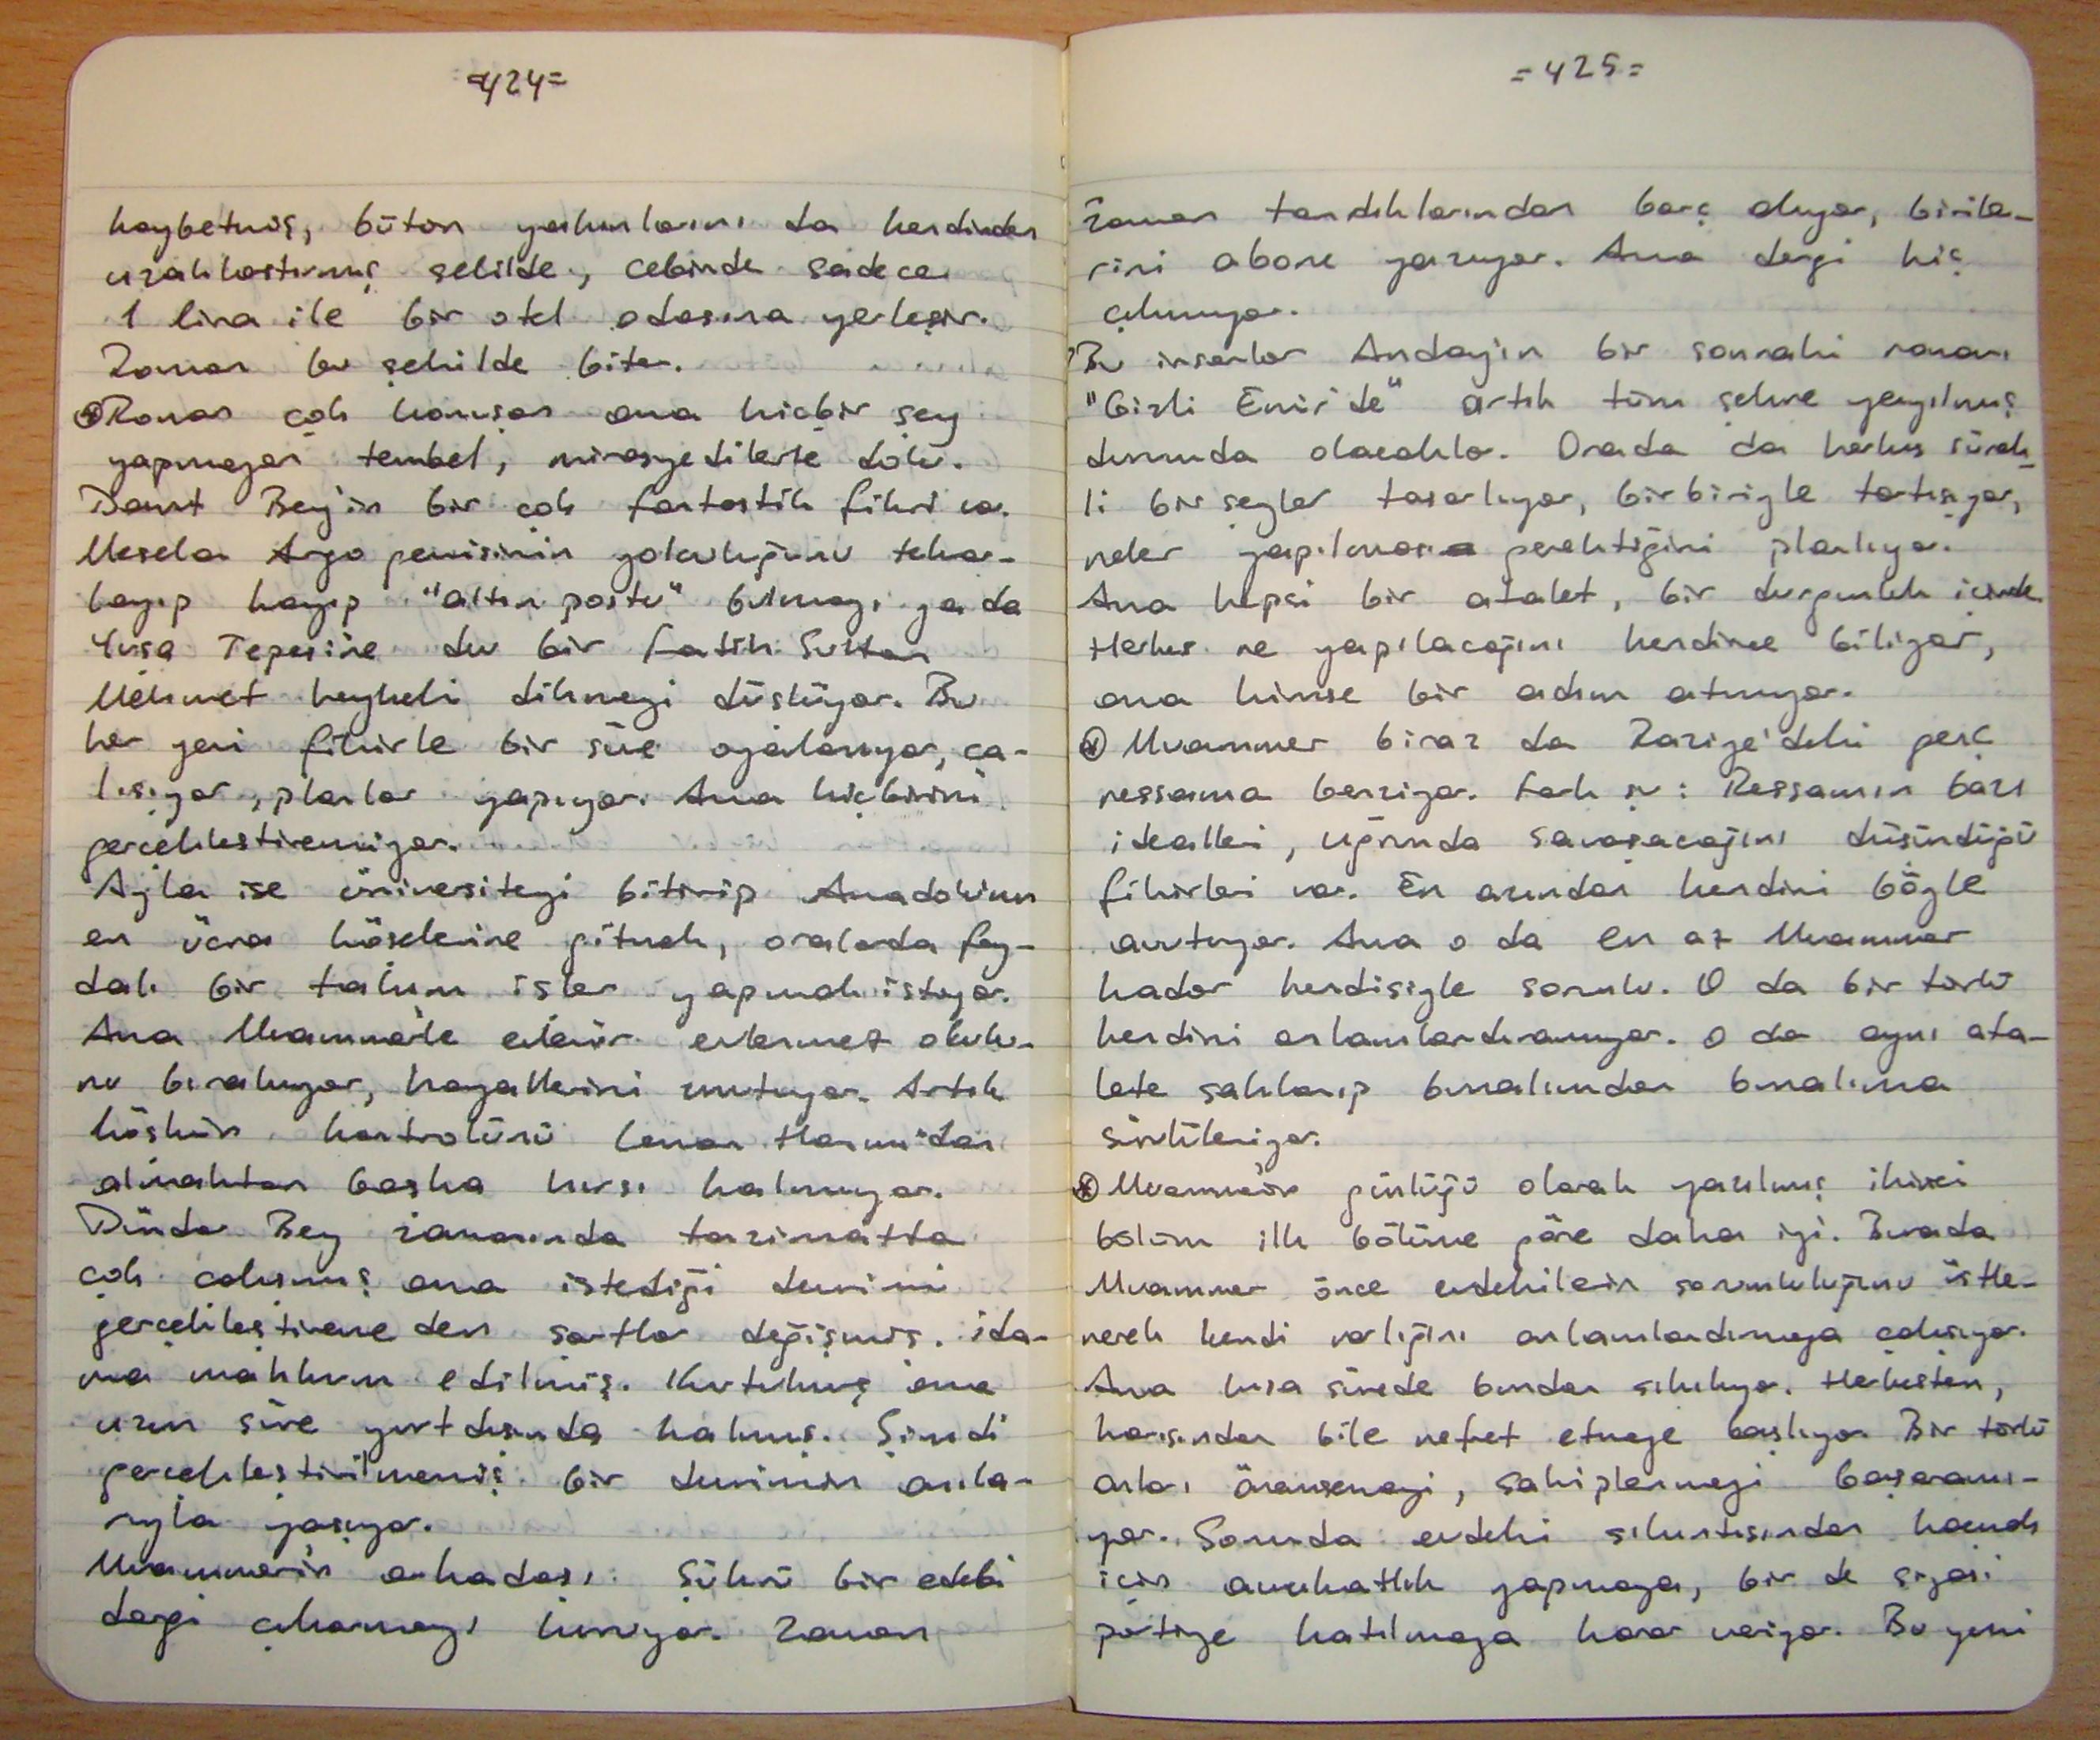 =424=
kaybetmiş, bütün yakınlarını da kendinden
uzaklaştırmış şekilde, cebinde sadece
1 lira ile bir otel odasına yerleşir.
Roman bu şekilde biter.
Roman çok konuşan ama hiçbir şey
yapmayan tembel, mirasyedilerle dolu.
Davut Bey'in bir çok fantastik fikri var.
Mesela Argo gemisinin yolculuğunu tekrar-
layıp kayıp "altın postu" bulmayı ya da
Yuşa Tepesine dev bir Fatih Sultan
Mehmet heykeli dikmeyi düşlüyor. Bu
her yeni fikirle bir süre oyalanıyor, ça-
lışıyor, planlar yapıyor. Ama hiçbirini
gerçekleştiremiyor.
Ayla ise üniversiteyi bitirip Anadolu'nun
en ücra köşelerine gitmek, oralarda fay-
dalı bir takım işler yapmak istiyor.
Ama Muammer'le evlenir evlenmez okulu-
nu bırakıyor, hayallerini unutuyor. Artık
köşkün kontrolünü Leman Hanım'dan
almaktan başka hırsı kalmıyor.
Dündar Bey zamanında tanzimatta
çok çalışmış ama istediği devrimi
gerçekleştiremeden şartlar değişmiş. İda-
ma mahkum edilmiş. Kurtulmuş ama
uzun süre yurtdışında kalmış. Şimdi
gerçekleştirilmemiş bir devrimin anıla-
rıyla yaşıyor.
Muammer'in arkadaşı Şükrü bir edebi
dergi çıkarmayı kuruyor. Zaman
=425=
zaman tanıdıklarından borç alıyor, birile-
rini abone yazıyor. Ama dergi hiç
çıkmıyor.
Bu insanlar Anday'ın bir sonraki romanı
"Gizli Emir'de" artık tüm şehre yayılmış
durumda olacaklar. Orada da herkes sürek-
li bir şeyler tasarlıyor, birbiriyle tartışıyor,
neler yapılması gerektiğini planlıyor.
Ama hepsi bir atalet, bir durgunluk içinde.
Herkes ne yapılacağını kendince biliyor,
ama kimse bir adım atmıyor.
Muammer biraz da Raziye'deki genç
ressama benziyor. Fark şu: Ressamın bazı
idealleri, uğrunda savaşacağını düşündüğü
fikirleri var. En azından kendini böyle
avutuyor. Ama o da en az Muammer
kadar kendisiyle sorunlu. O da bir türlü
kendini anlamlandıramıyor. O da aynı ata-
lete saklanıp bunalımdan bunalıma
sürükleniyor.
Muammer'in günlüğü olarak yazılmış ikinci
bölüm ilk bölüme göre daha iyi. Burada
Muammer önce evdekilerin sorumluluğunu üstle-
nerek kendi varlığını anlamlandırmaya çalışıyor.
Ama kısa sürede bundan sıkılıyor. Herkesten,
karısından bile nefret etmeye başlıyor. Bir türlü
onları önemsemeyi, sahiplenmeyi başaramı-
yor. Sonunda evdeki sıkıntısından kaçmak
için avukatlık yapmaya, bir de siyasi
partiye katılmaya karar veriyor. Bu yeni